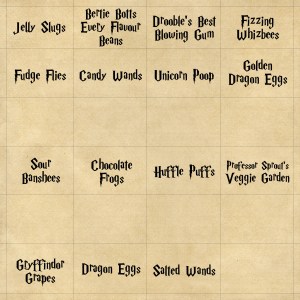 Jelly Slugs
Bertie Botts
Every Flavour
Beans
Drooble's Best
Blowing Gum
Fizzing
Whizbees
Fudge Flies
Candy Wands
Unicorn Poop
Golden
Dragon Eggs
Sour
Banshees
Chocolate
Frogs
Huffle Puffs
Professor Sprout's
Veggie Garden
Gryffindor
Grapes
Dragon Eggs
Salted Wands